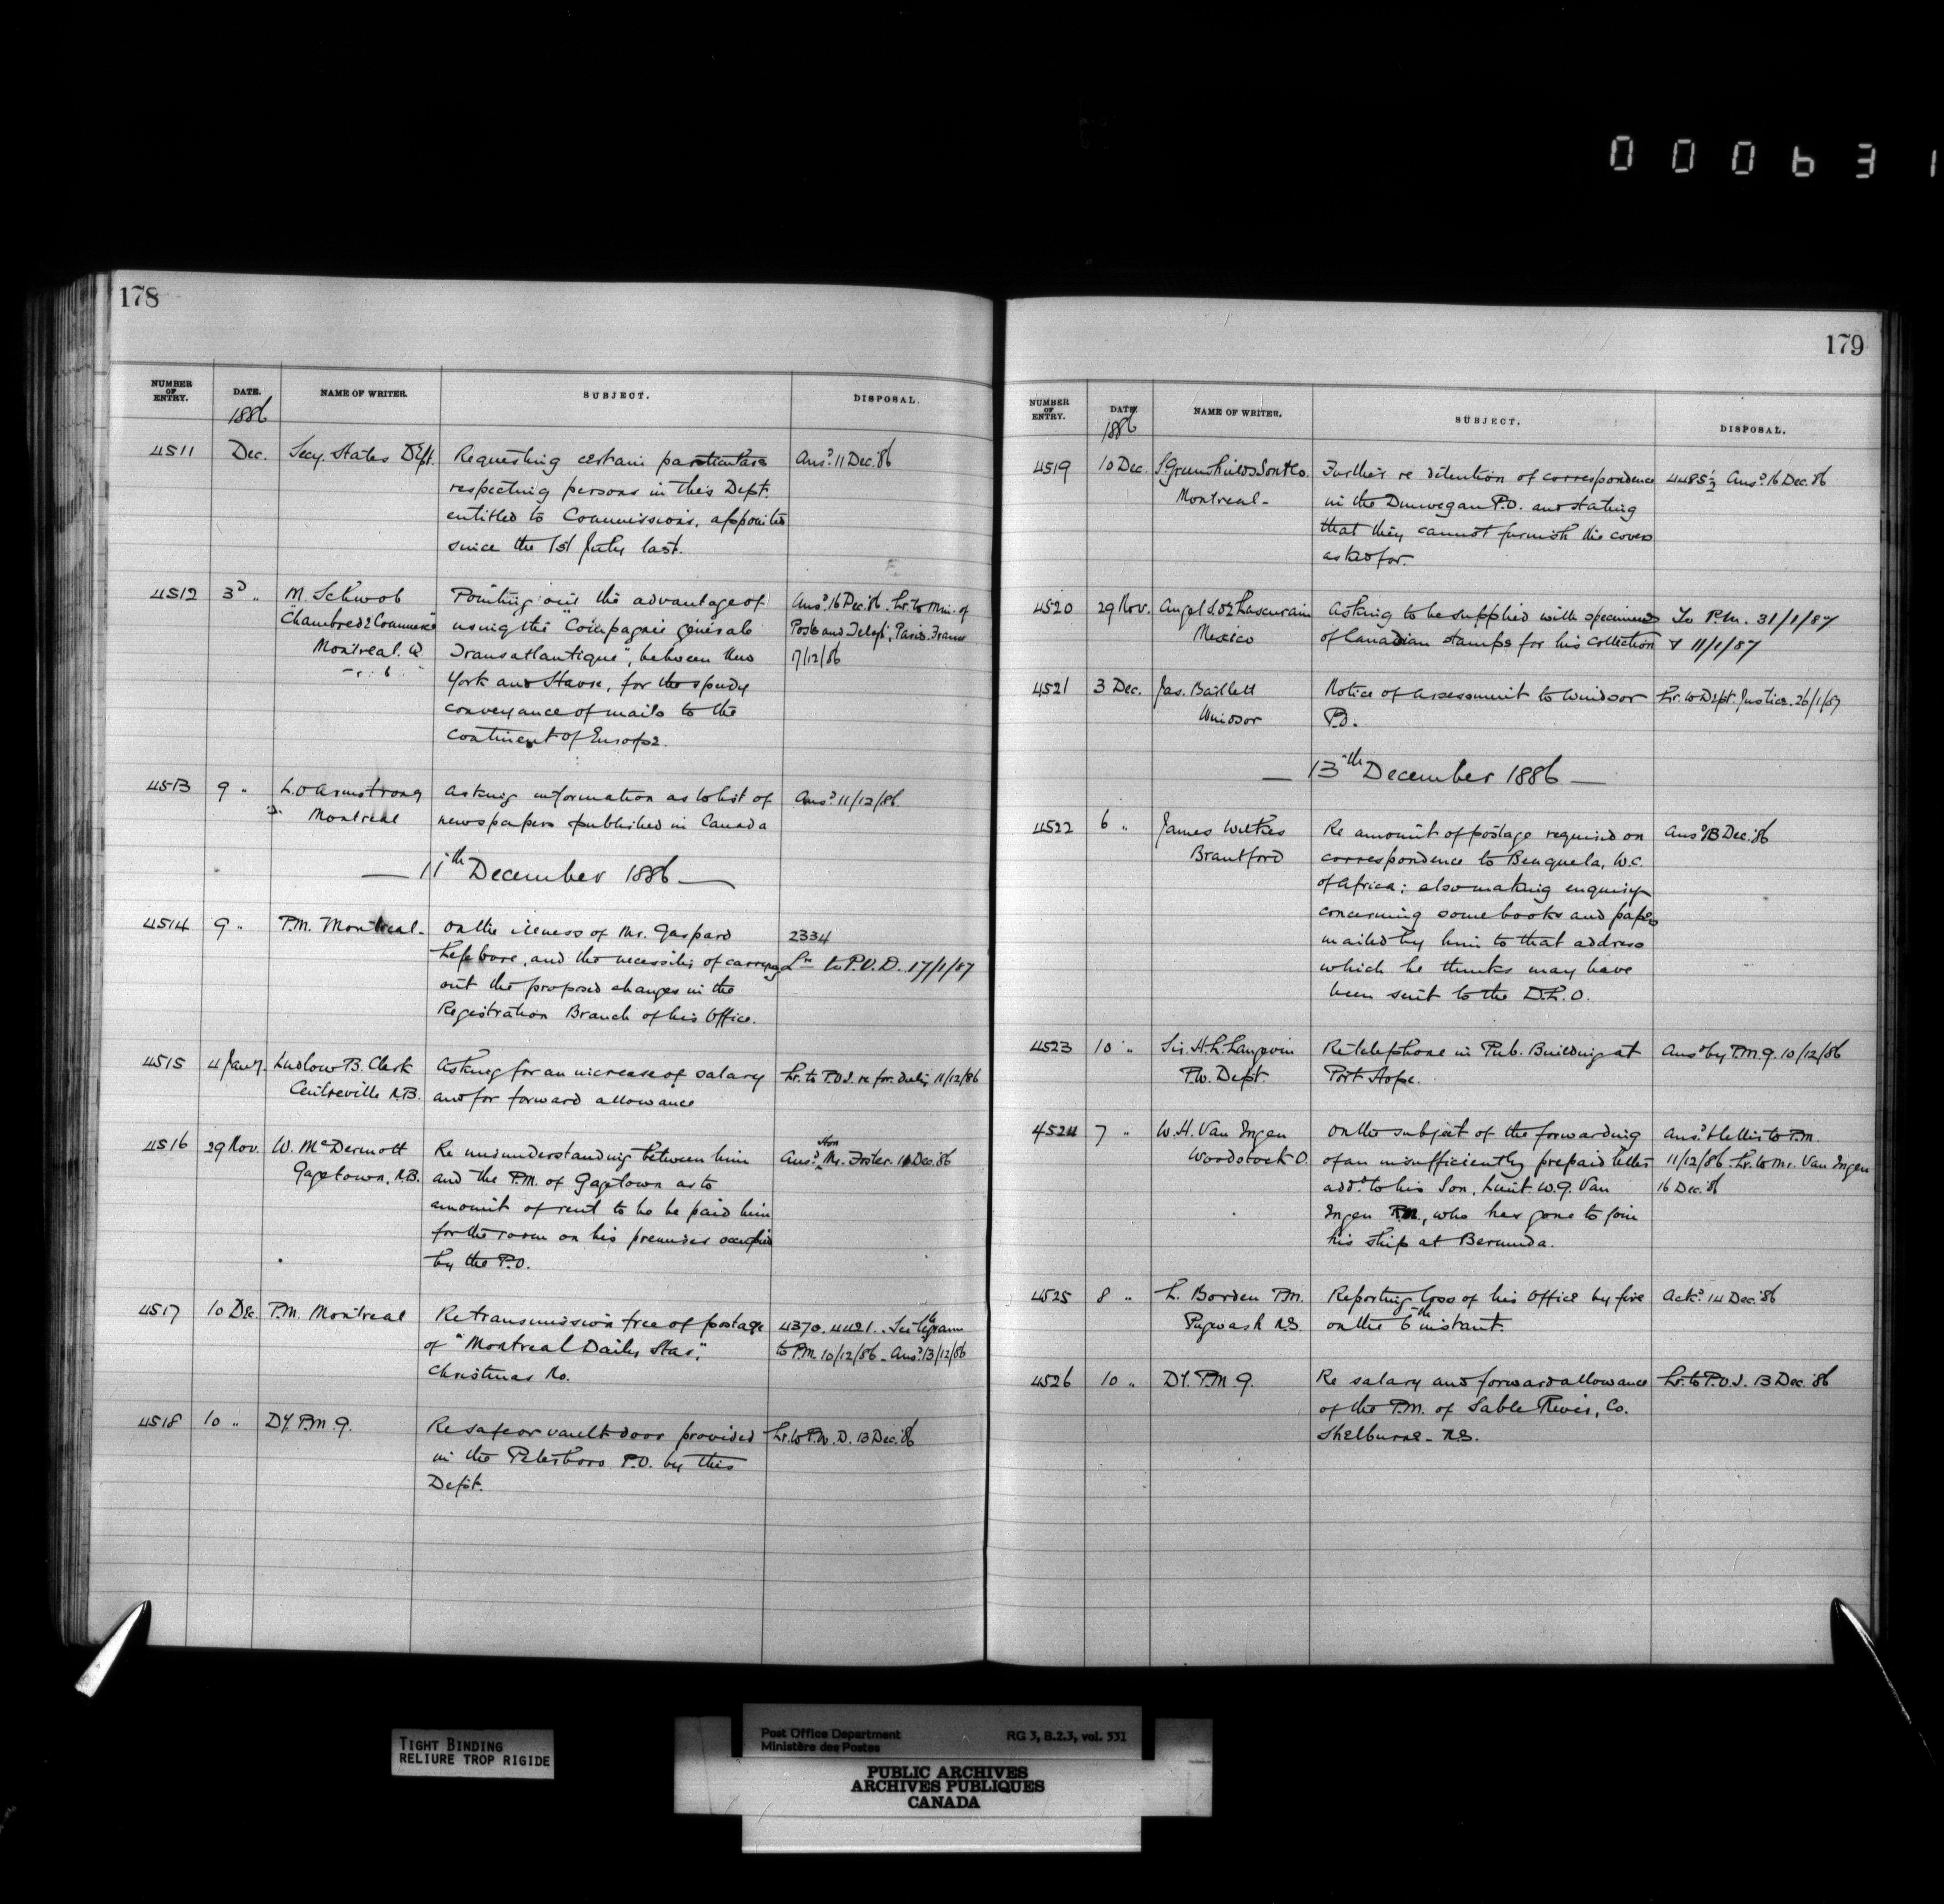 000631
178
NUMBER OF ENTRY. DATE. NAME OF WRITER. SUBJECT. DISPOSAL.
1886
4511 Dec. Secy. States Dept. Requesting certain particulars Ansd. 11 Dec. '86
respecting persons in this Dept.
entitled to Commissions, appointed
since the 1st July last.
4512 3d " M. Schwob Pointing out the advantage of Ansd. 16 Dec. '86. Lr. to Min. of
Chambre de Commerce using the "Compagnie générale Posts and Telegs., Paris, France
Montreal. Q. Transatlantique", between New 17/12/86
York and Havre, for the speedy
conveyance of mails to the
Continent of Europe.
4513 9 " L.O Armstrong Asking information as to list of Ansd. 11/12/86.
Montreal newspapers published in Canada
— 11th December 1886 —
4514 9 " P.M. Montreal. On the illness of Mr. Gaspard 2334
Lefebvre, and the necessity of carrying Lr. to P.O.D. 17/1/87
out the proposed changes in the
Registration Branch of his Office.
4515 4 Ludlow B. Clark Asking for an increase of salary Lr. to P.O.I. re for. duty 11/12/86
Centreville N.B. and for forward allowance
4516 29 Nov. W. McDermott Re misunderstanding between him Ansd. Hon Mr. Foster. 16 Dec. '86
Gagetown, N.B. and the P.M. of Gagetown as to
amount of rent to be be paid him
for the room on his premises occupied
by the P.O.
4517 10 Dec. P.M. Montreal Re transmission free of postage 4370. 4421.
of "Montreal Daily Star," to P.M. 10/12/86. Ansd. 13/12/86
Christmas No.
4518 10 " Dy. P.M.G. Re safe or vault door provided Lr. to P.W.D. 13 Dec. '86
in the Peterboro P.O. by this
Dept.
179
NUMBER OF ENTRY. DATE. NAME OF WRITER. SUBJECT. DISPOSAL.
1886
4519 10 Dec. S. Greenshields Son & Co. Further re detention of correspondence 4485½ Ansd. 16 Dec. '86
Montreal. in the Dunvegan P.O. and stating
that they cannot furnish the covers
asked for.
4520 29 Nov. Angel Asking to be supplied with specimens To P.M. 31/1/87
Mexico of Canadian stamps for his collection & 11/1/87
4521 3 Dec. Jas. Bartlett Notice of Assessment to Windsor Lr. to Dept. Justice. 26/1/87
Windsor P.O.
— 13th December 1886 —
4522 6 " James Wilkes Re amount of postage required on Ansd. 13 Dec. '86
Brantford correspondence to Benguela, W.C.
of Africa; also making enquiry
concerning some books and papers
mailed by him to that address
which he thinks may have
been sent to the D.L.O.
4523 10 " Sir. H.L. Langevin Re telephone in Pub. Building at Ansd. by P.M.G. 10/12/86
P.W. Dept. Port Hope.
4524 7 " W.H. Van Ingen On the subject of the forwarding Ansd. & letter to P.M.
Woodstock O. of an insufficiently prepaid letter 11/12/86. Lr. to Mr. Van Ingen
addd. to his Son, Lieut. W.G. Van 16 Dec. '86
Ingen R.N., who has gone to join
his ship at Bermuda.
4525 8 " L. Borden P.M. Reporting loss of his Office by fire Ackd. 14 Dec. '86
Pugwash N.S. on the 6th instant.
4526 10 " Dy. P.M.G. Re salary and forward allowance Lr. to P.O.I. 13 Dec. '86
of the P.M. of Sable River, Co.
Shelburne. N.S.
TIGHT BINDING
RELIURE TROP RIGIDE
Post Office Department RG 3, B.2.3, vol. 331
Ministère des Postes
PUBLIC ARCHIVES
ARCHIVES PUBLIQUES
CANADA